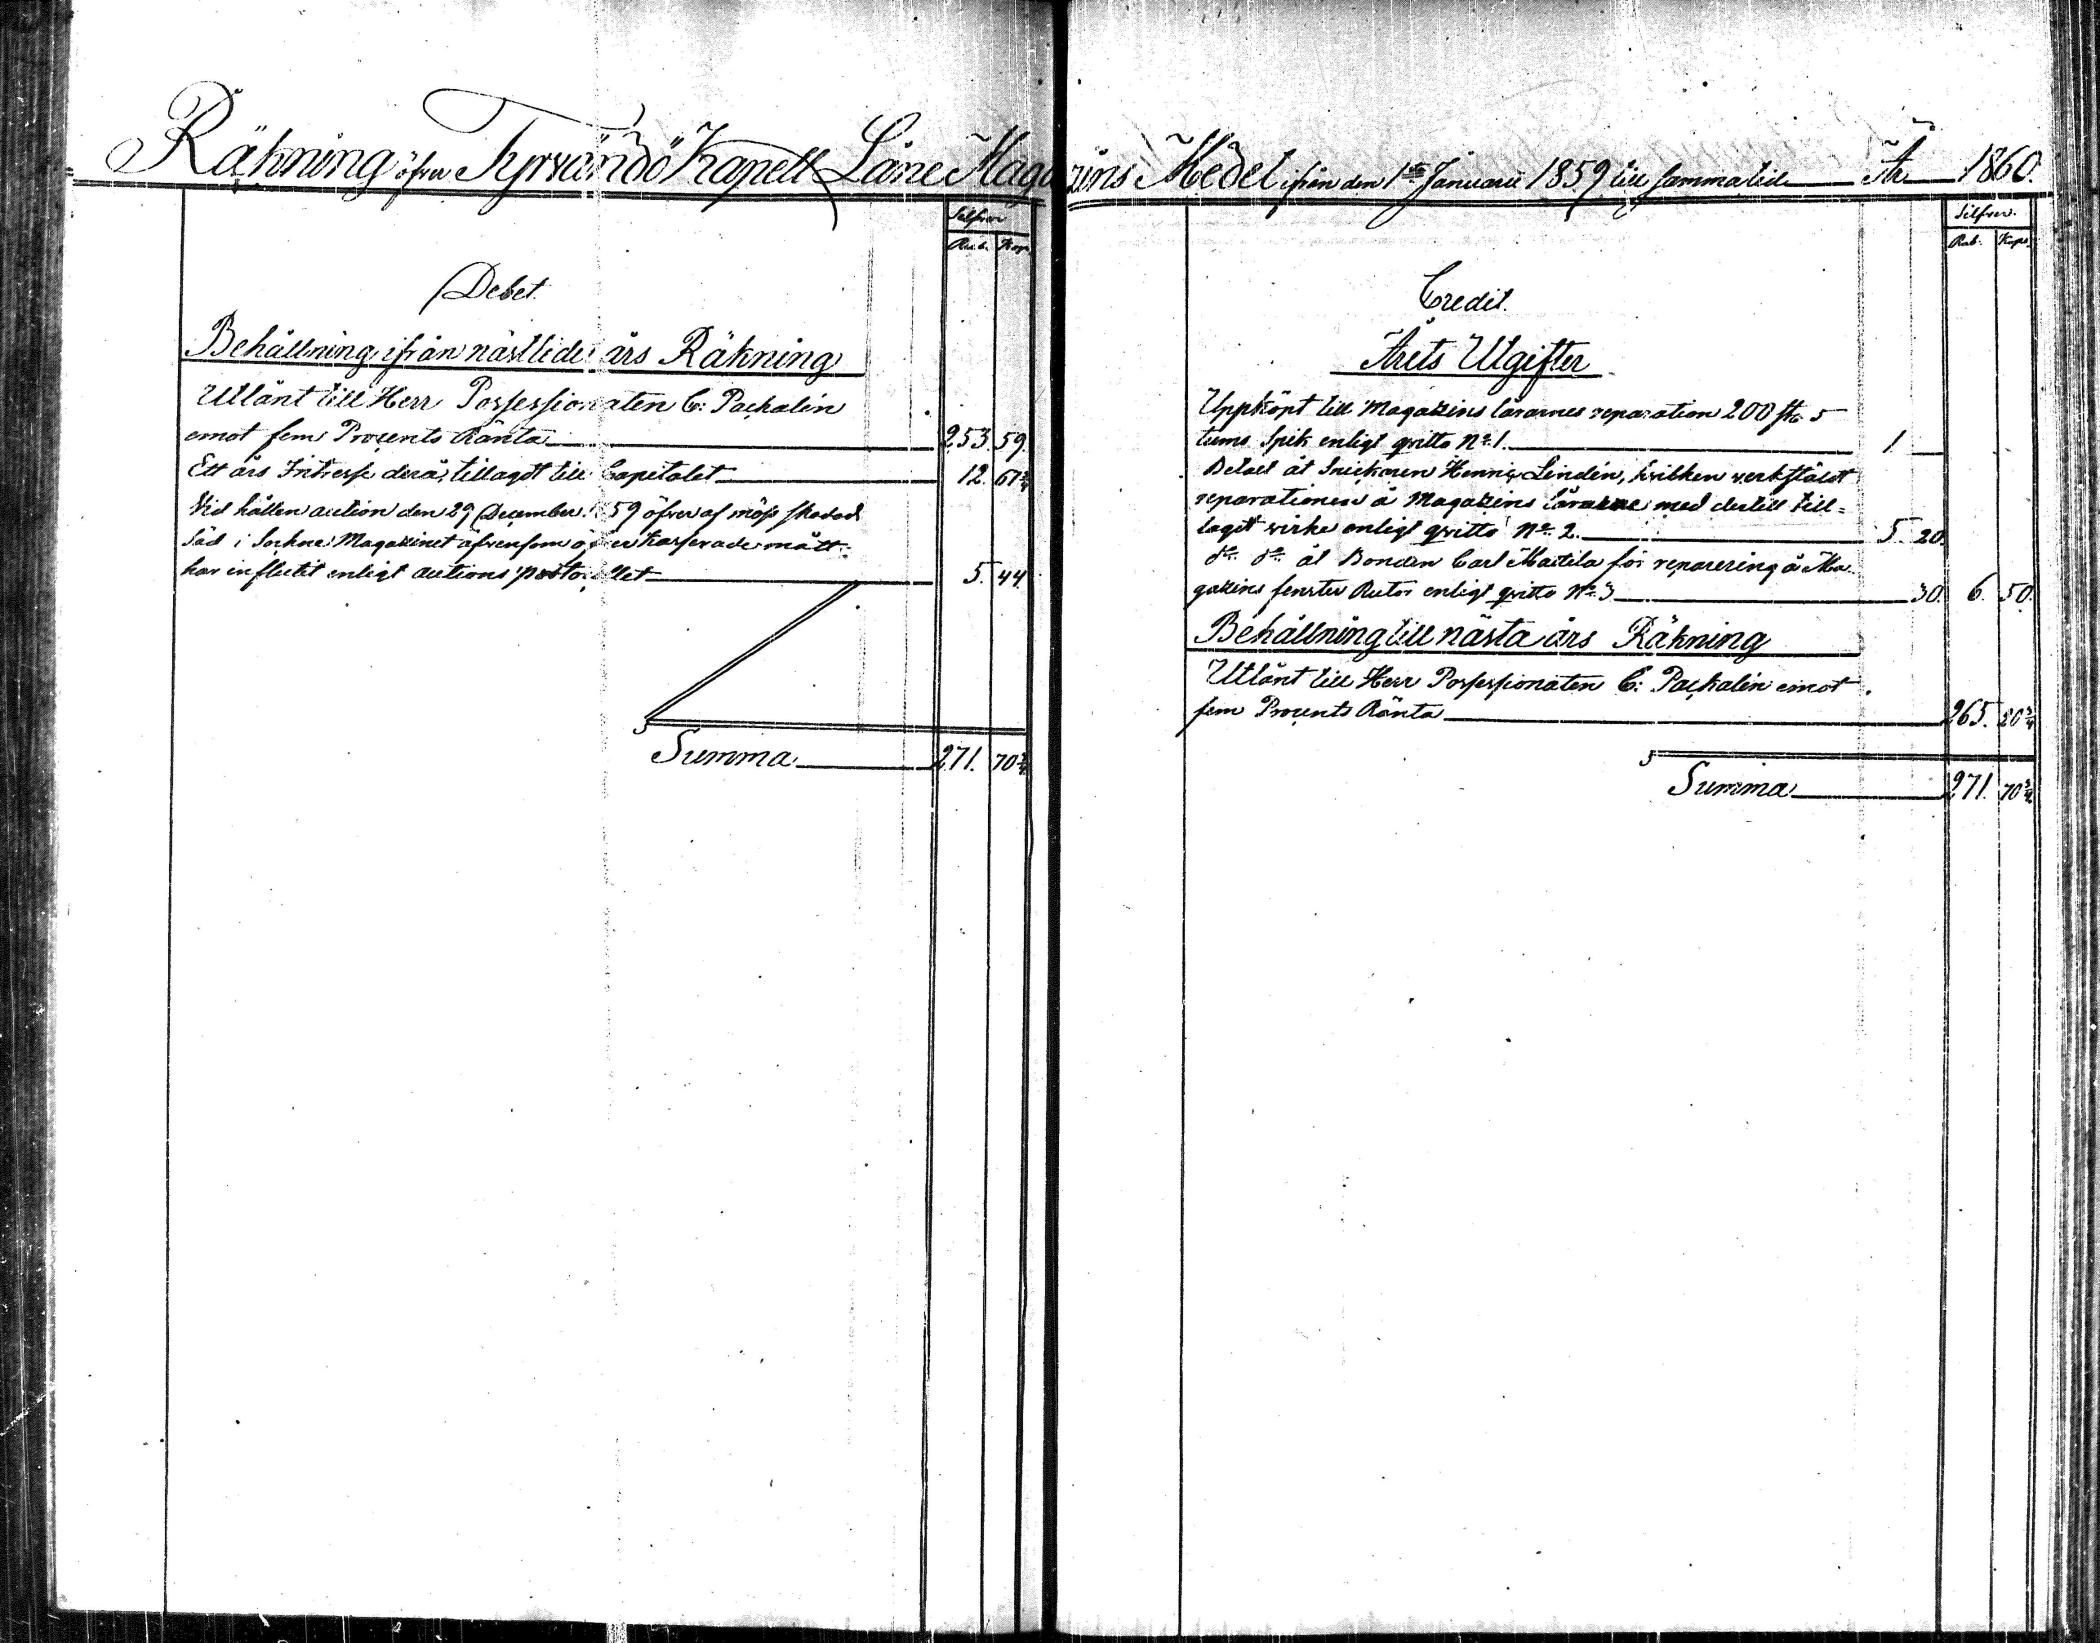 Räkning öfver Tyrväntö Kapell Låne Magazins Medel ifrån den 1ste Januarii 1859 till samma tid År 1860.
Silfver
Rub. Kop.
Debet.
Behållning ifrån nästlidet års Räkning
Utlånt till Herr Possessionaten C: Packalén
emot fem Procents Ränta 253. 59.
Ett års Intresse derå, tillagdt till Capitalet 12. 67¾
Vid hållen auction den 29 December 1859 öfver af möss skadad
Säd i Sockne Magazinet äfvensom öfver kasserade mått
har influtit enligt auctions protocollet 5. 44.
Summa 271. 70¾
Silfver.
Rub. Kop.
Credit.
Årets Utgifter
Uppköpt till Magazins lårarnes reparation 200 st. 5
tums Spik enligt qvitto No. 1. 1
Betalt åt Snickaren Henric Lindén, hvilken verkstäldt
reparationen å Magazins lårarne med dertill till-
laget virke enligt qvitto No. 2. 5. 20.
do. do. åt Bonden Carl Mattila för reparering å Ma-
gazins fenster Rutor enligt qvitto No. 3 30. 6. 50.
Behållning till nästa års Räkning
Utlånt till Herr Possessionaten C: Packalén emot
fem Procents Ränta 265. 20¾
Summa 271. 70¾